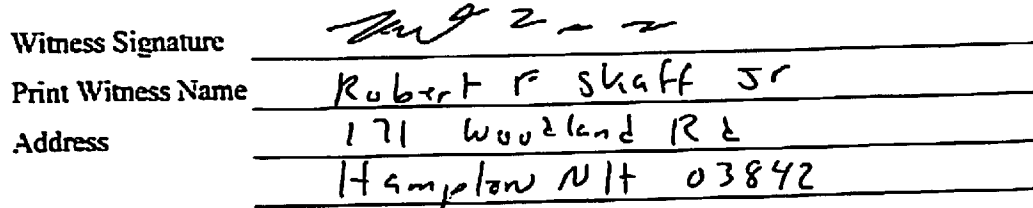 Witness Signature
Print Witness Name Robert F Skaff Jr
Address 171 Woodland Rd
Hampton NH 03842